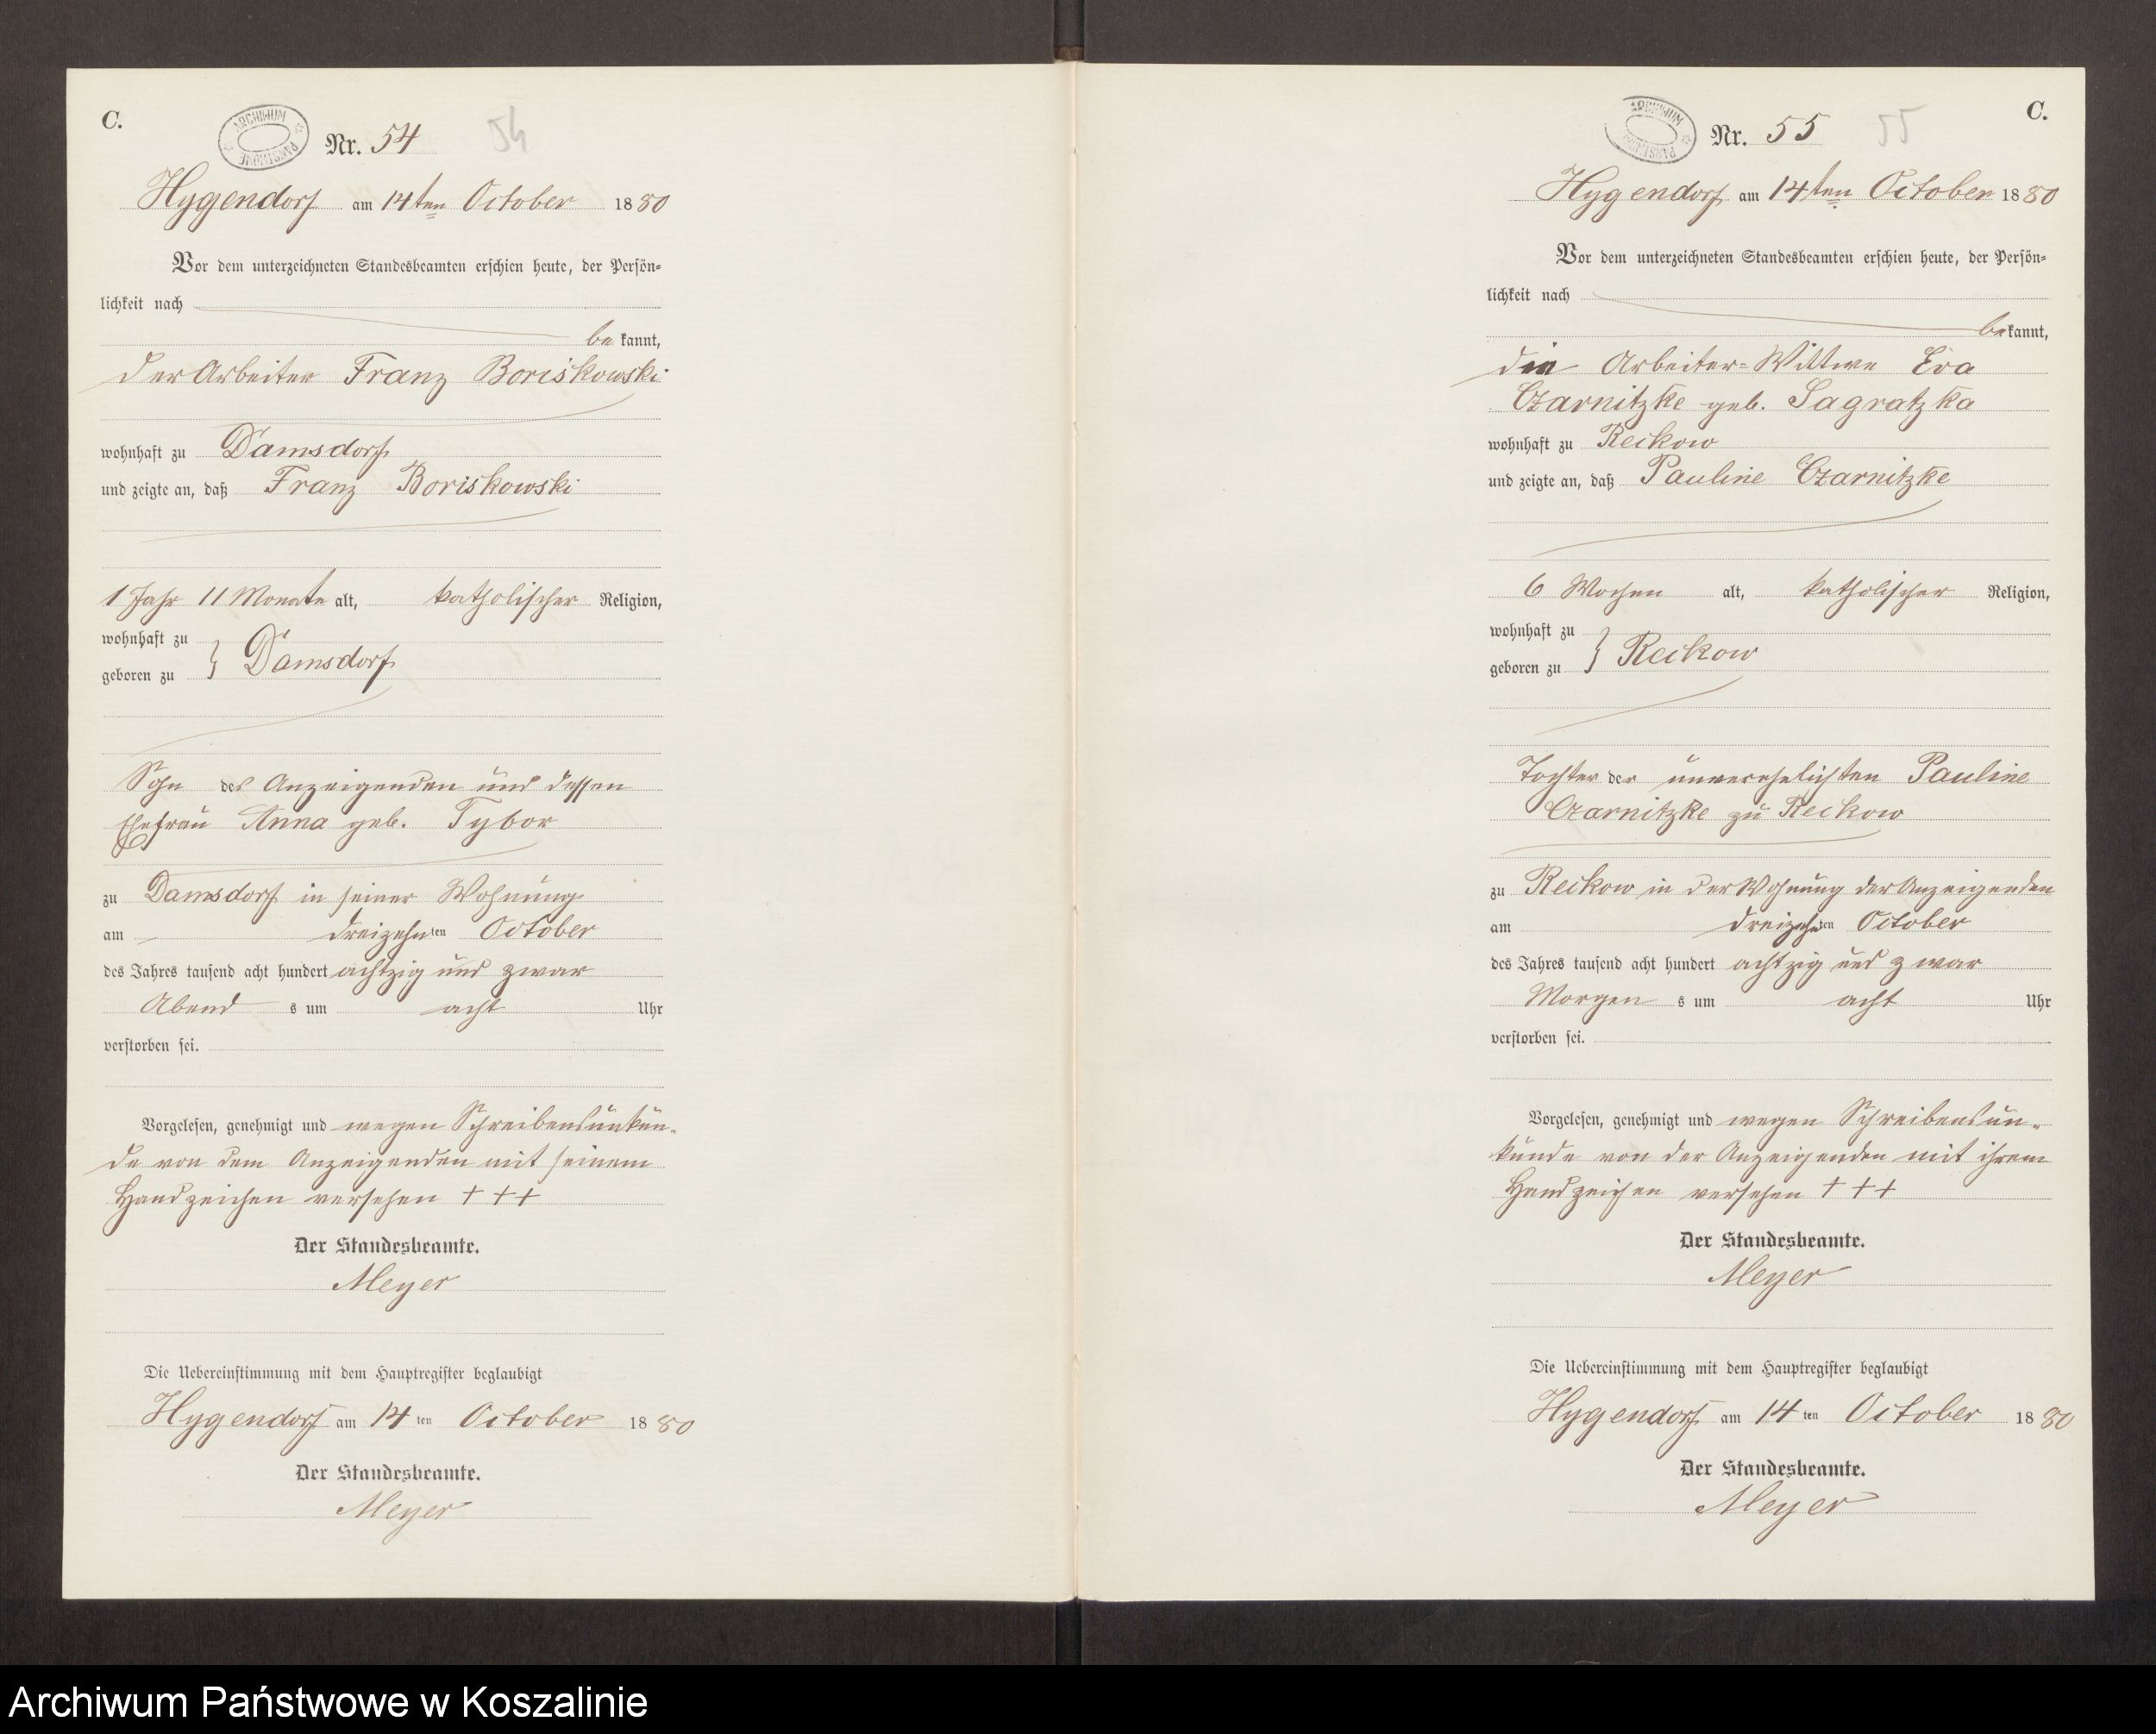 C.
ARCHIWUM PAŃSTWOWE
Nr. 54 54
Hygendorf am 14ten October 1880
Vor dem unterzeichneten Standesbeamten erschien heute, der Persön-
lichkeit nach
be kannt,
der Arbeiter Franz Boriskowski
wohnhaft zu Damsdorf
und zeigte an, daß Franz Boriskowski
1 Jahr 11 Monate alt, katholischer Religion,
wohnhaft zu
geboren zu } Damsdorf
Sohn des Anzeigenden und dessen
Ehefrau Anna geb. Tybor
zu Damsdorf in seiner Wohnung
am dreizehnten October
des Jahres tausend acht hundert achtzig und zwar
Abend s um acht Uhr
verstorben sei.
Vorgelesen, genehmigt und wegen Schreibensunkun-
de von dem Anzeigenden mit seinem
Handzeichen versehen + + +
Der Standesbeamte.
Meyer
Die Uebereinstimmung mit dem Hauptregister beglaubigt
Hygendorf am 14 ten October 1880
Der Standesbeamte.
Meyer
C.
ARCHIWUM PAŃSTWOWE
Nr. 55 55
Hygendorf am 14ten October 1880
Vor dem unterzeichneten Standesbeamten erschien heute, der Persön-
lichkeit nach
be kannt,
die Arbeiter-Wittwe Eva
Czarnitzke geb. Sagratzka
wohnhaft zu Reckow
und zeigte an, daß Pauline Czarnitzke
6 Wochen alt, katholischer Religion,
wohnhaft zu
geboren zu } Reckow
Tochter der unverehelichten Pauline
Czarnitzke zu Reckow
zu Reckow in der Wohnung der Anzeigenden
am dreizehnten October
des Jahres tausend acht hundert achtzig und zwar
Morgen s um acht Uhr
verstorben sei.
Vorgelesen, genehmigt und wegen Schreibensun-
kunde von der Anzeigenden mit ihrem
Handzeichen versehen + + +
Der Standesbeamte.
Meyer
Die Uebereinstimmung mit dem Hauptregister beglaubigt
Hygendorf am 14 ten October 1880
Der Standesbeamte.
Meyer
Archiwum Państwowe w Koszalinie